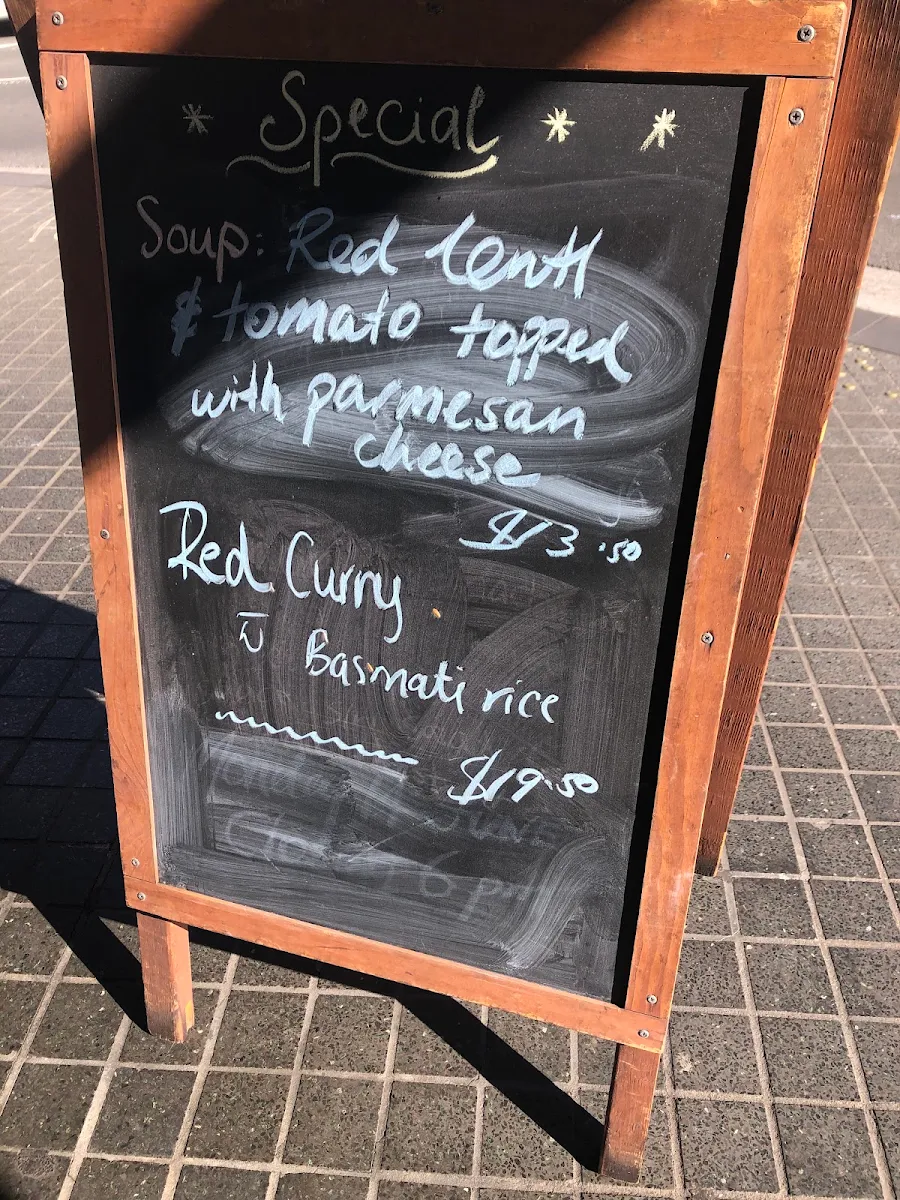 * Special * *
Soup: Red lentl
& tomato topped
with parmesan
cheese
$13.50
Red Curry
w̄ Basmati rice
$19.50
6 pm